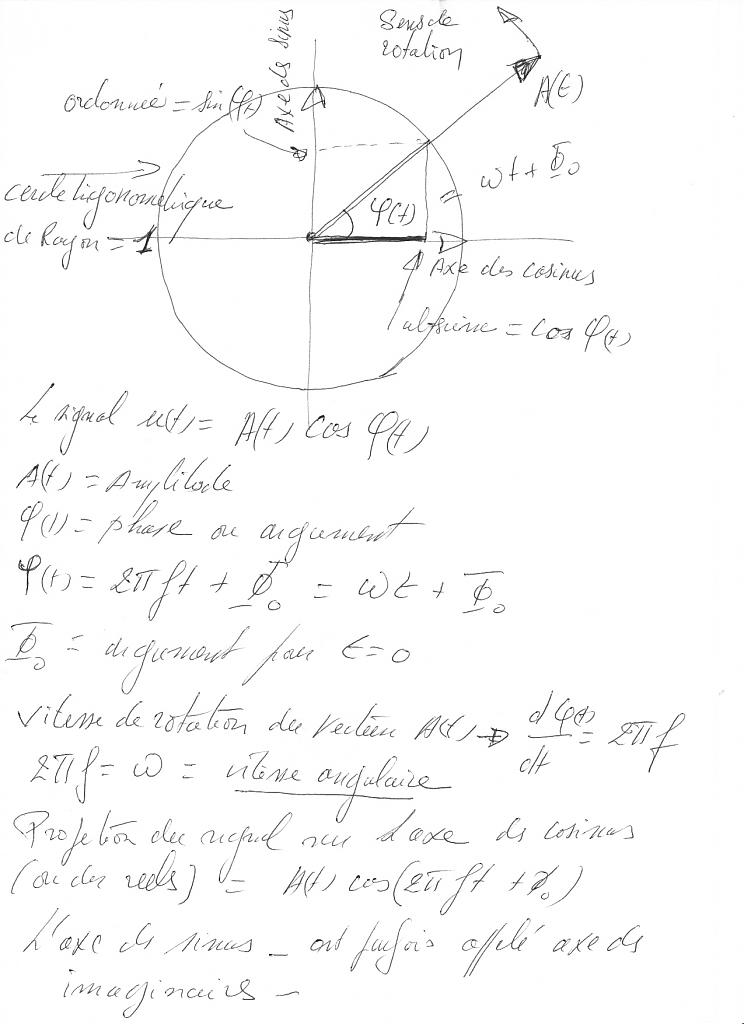 Sens de
rotation
Axe des sinus
A(t)
ordonnée = sin φ(t)
cercle trigonométrique
de Rayon = 1
φ(t)
= ωt + Φ₀
Axe des cosinus
abscisse = cos φ(t)
Le signal u(t) = A(t) cos φ(t)
A(t) = Amplitude
φ(t) = phase ou argument
φ(t) = 2πft + Φ₀ = ωt + Φ₀
Φ₀ = argument pour t=0
Vitesse de rotation du vecteur A(t) → dφ(t)/dt = 2πf
2πf = ω = vitesse angulaire
Projection du signal sur l'axe des cosinus
(ou des réels) = A(t) cos(2πft + Φ₀)
L'axe des sinus - est parfois appelé axe des
imaginaires -